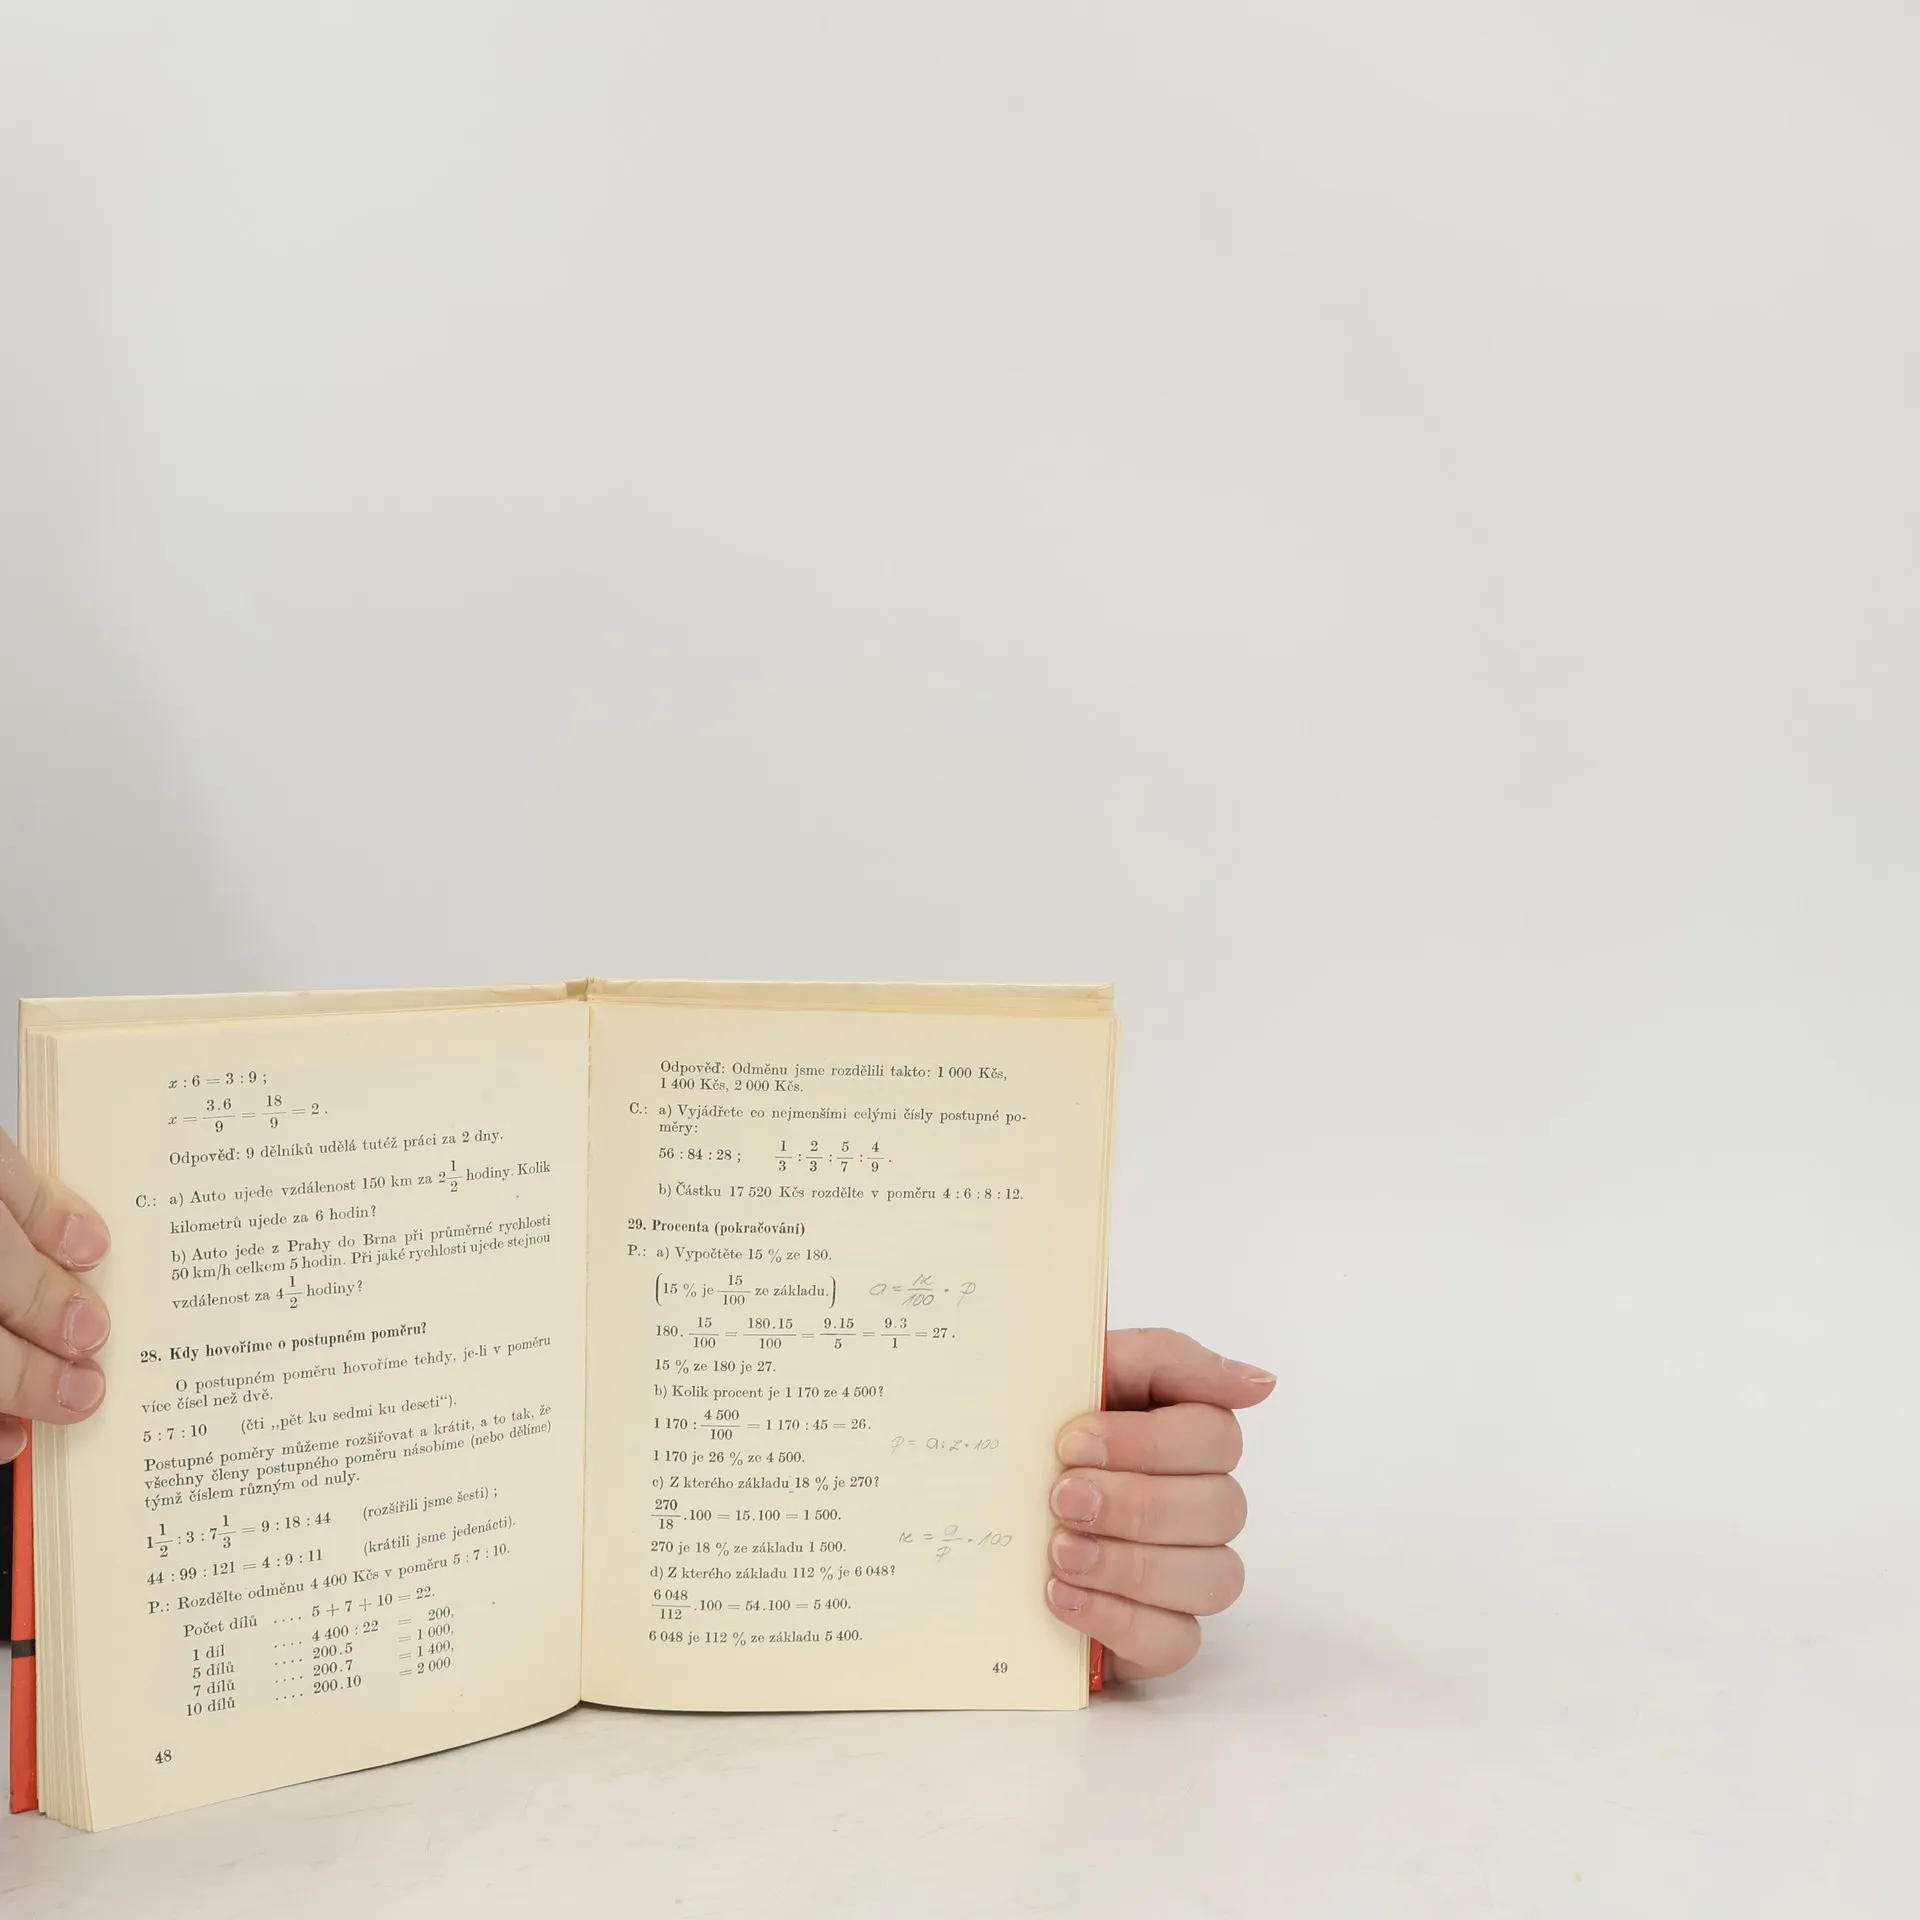 x : 6 = 3 : 9 ;
x = 3.6/9 = 18/9 = 2 .
Odpověď: 9 dělníků udělá tutéž práci za 2 dny.
C.: a) Auto ujede vzdálenost 150 km za 2 1/2 hodiny. Kolik
kilometrů ujede za 6 hodin?
b) Auto jede z Prahy do Brna při průměrné rychlosti
50 km/h celkem 5 hodin. Při jaké rychlosti ujede stejnou
vzdálenost za 4 1/2 hodiny?
28. Kdy hovoříme o postupném poměru?
O postupném poměru hovoříme tehdy, je-li v poměru
více čísel než dvě.
5 : 7 : 10 (čti ,,pět ku sedmi ku deseti“).
Postupné poměry můžeme rozšiřovat a krátit, a to tak, že
všechny členy postupného poměru násobíme (nebo dělíme)
týmž číslem různým od nuly.
1 1/2 : 3 : 7 1/3 = 9 : 18 : 44 (rozšířili jsme šesti) ;
44 : 99 : 121 = 4 : 9 : 11 (krátili jsme jedenácti).
P.: Rozdělte odměnu 4 400 Kčs v poměru 5 : 7 : 10.
Počet dílů .... 5 + 7 + 10 = 22.
1 díl .... 4 400 : 22 = 200,
5 dílů .... 200.5 = 1 000,
7 dílů .... 200.7 = 1 400,
10 dílů .... 200.10 = 2 000
48
Odpověď: Odměnu jsme rozdělili takto: 1 000 Kčs,
1 400 Kčs, 2 000 Kčs.
C.: a) Vyjádřete co nejmenšími celými čísly postupné po-
měry:
56 : 84 : 28 ; 1/3 : 2/3 : 5/7 : 4/9 .
b) Částku 17 520 Kčs rozdělte v poměru 4 : 6 : 8 : 12.
29. Procenta (pokračování)
P.: a) Vypočtěte 15 % ze 180.
(15 % je 15/100 ze základu.) a = z/100 . p
180. 15/100 = 180.15/100 = 9.15/5 = 9.3/1 = 27 .
15 % ze 180 je 27.
b) Kolik procent je 1 170 ze 4 500?
1 170 : 4 500/100 = 1 170 : 45 = 26.
p = a : z . 100
1 170 je 26 % ze 4 500.
c) Z kterého základu 18 % je 270?
270/18 .100 = 15.100 = 1 500.
z = a/p . 100
270 je 18 % ze základu 1 500.
d) Z kterého základu 112 % je 6 048?
6 048/112 .100 = 54.100 = 5 400.
6 048 je 112 % ze základu 5 400.
49